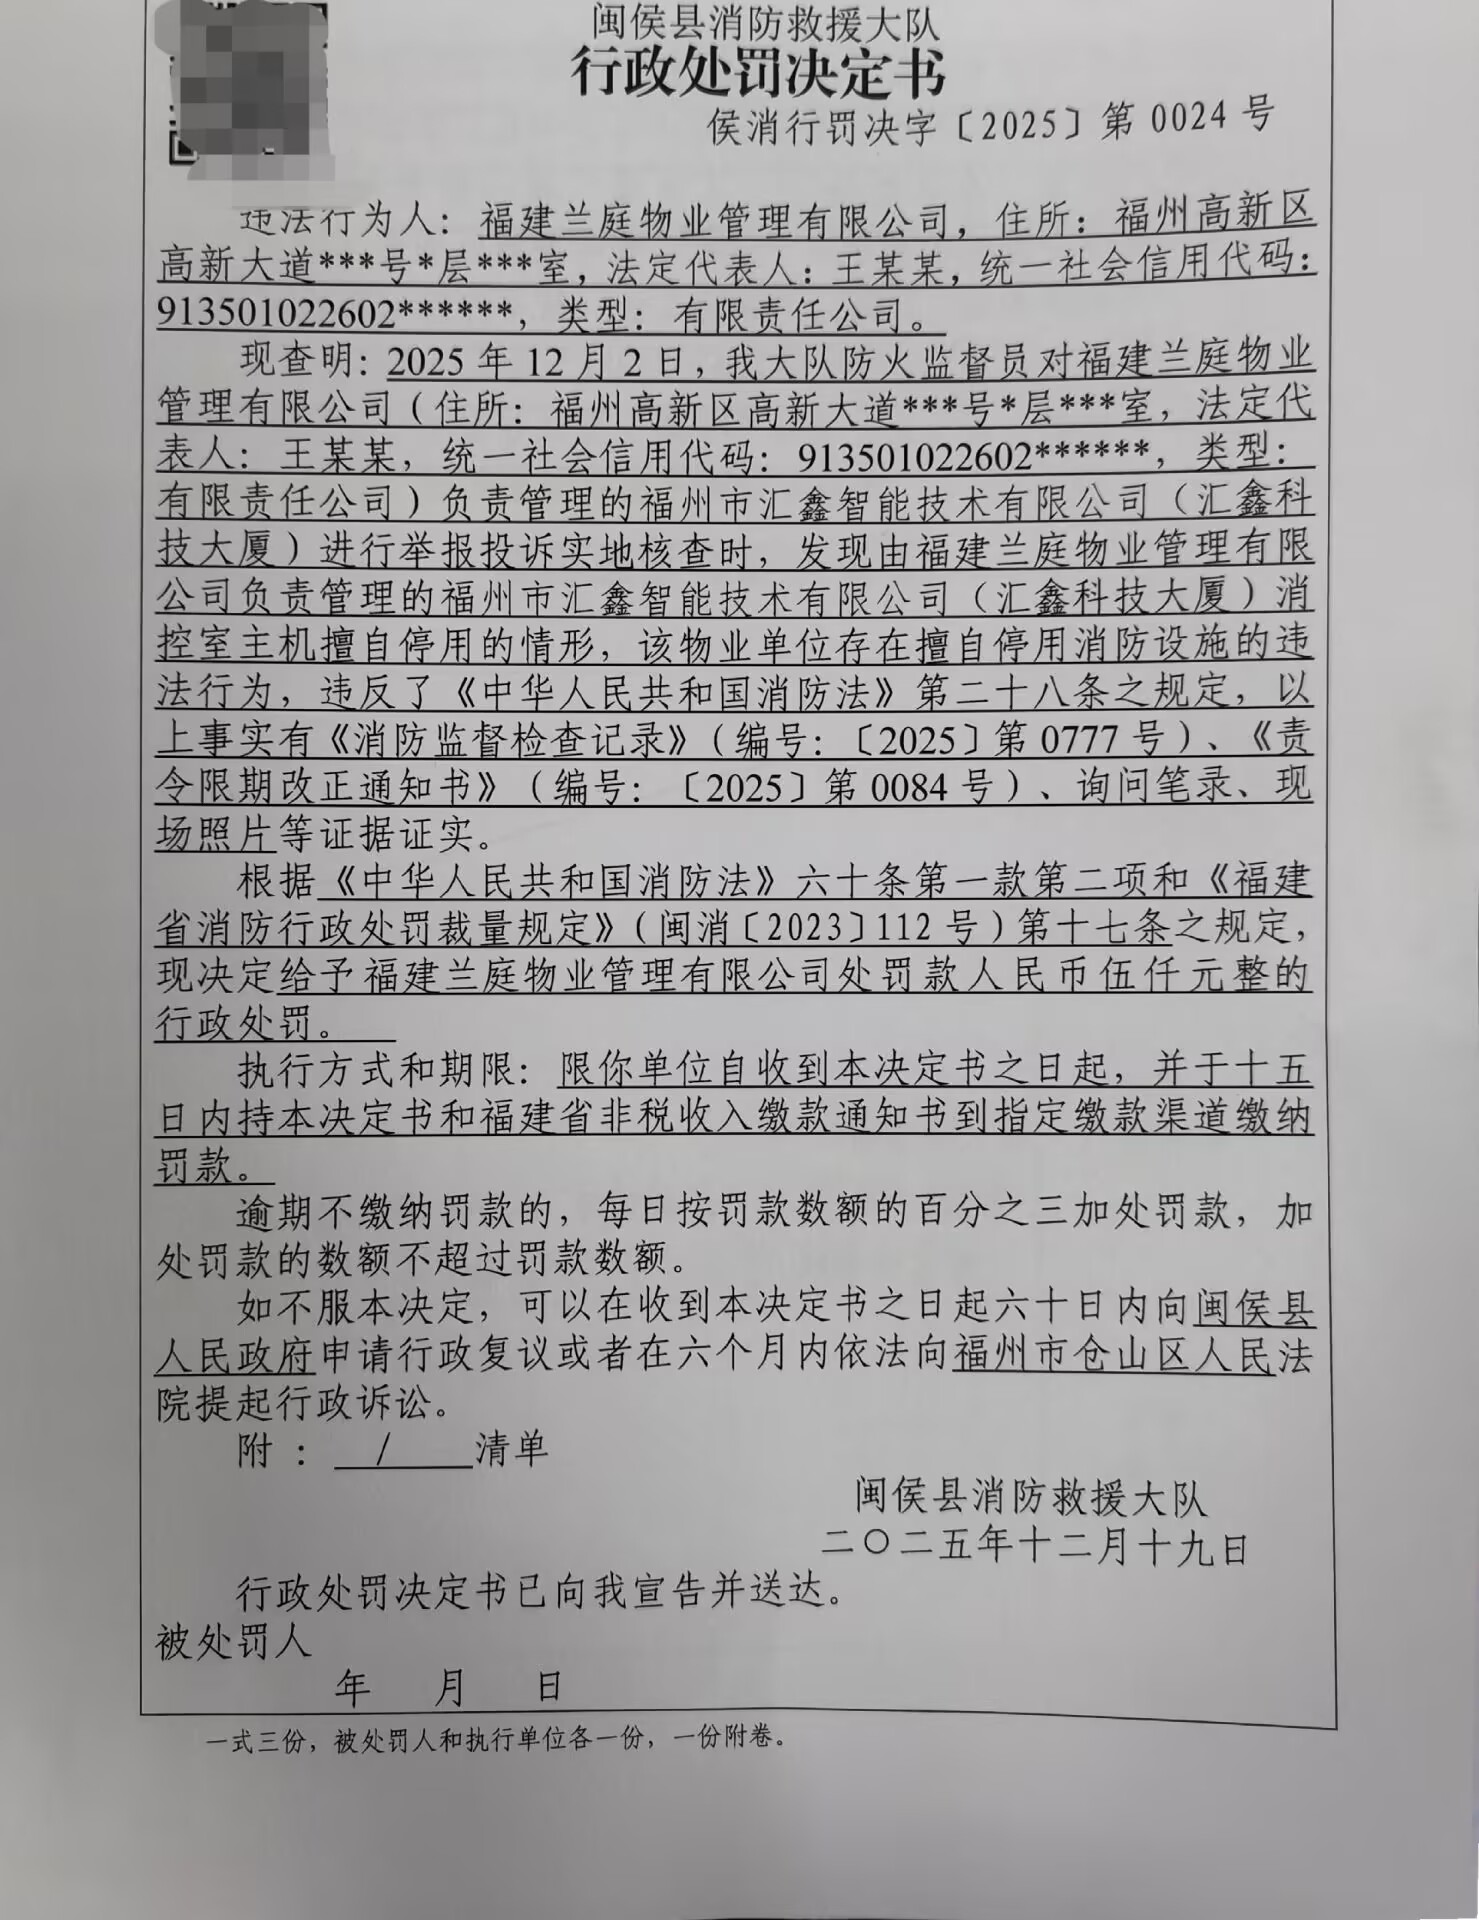 闽侯县消防救援大队
行政处罚决定书
侯消行罚决字〔2025〕第 0024 号
违法行为人：福建兰庭物业管理有限公司，住所：福州高新区
高新大道***号*层***室，法定代表人：王某某，统一社会信用代码：
913501022602******，类型：有限责任公司。
现查明：2025 年 12 月 2 日，我大队防火监督员对福建兰庭物业
管理有限公司（住所：福州高新区高新大道***号*层***室，法定代
表人：王某某，统一社会信用代码：913501022602******，类型：
有限责任公司）负责管理的福州市汇鑫智能技术有限公司（汇鑫科
技大厦）进行举报投诉实地核查时，发现由福建兰庭物业管理有限
公司负责管理的福州市汇鑫智能技术有限公司（汇鑫科技大厦）消
控室主机擅自停用的情形，该物业单位存在擅自停用消防设施的违
法行为，违反了《中华人民共和国消防法》第二十八条之规定，以
上事实有《消防监督检查记录》（编号：〔2025〕第 0777 号）、《责
令限期改正通知书》（编号：〔2025〕第 0084 号）、询问笔录、现
场照片等证据证实。
根据《中华人民共和国消防法》六十条第一款第二项和《福建
省消防行政处罚裁量规定》（闽消〔2023〕112 号）第十七条之规定，
现决定给予福建兰庭物业管理有限公司处罚款人民币伍仟元整的
行政处罚。
执行方式和期限：限你单位自收到本决定书之日起，并于十五
日内持本决定书和福建省非税收入缴款通知书到指定缴款渠道缴纳
罚款。
逾期不缴纳罚款的，每日按罚款数额的百分之三加处罚款，加
处罚款的数额不超过罚款数额。
如不服本决定，可以在收到本决定书之日起六十日内向闽侯县
人民政府申请行政复议或者在六个月内依法向福州市仓山区人民法
院提起行政诉讼。
附 ： / 清单
闽侯县消防救援大队
二〇二五年十二月十九日
行政处罚决定书已向我宣告并送达。
被处罚人
年 月 日
一式三份，被处罚人和执行单位各一份，一份附卷。